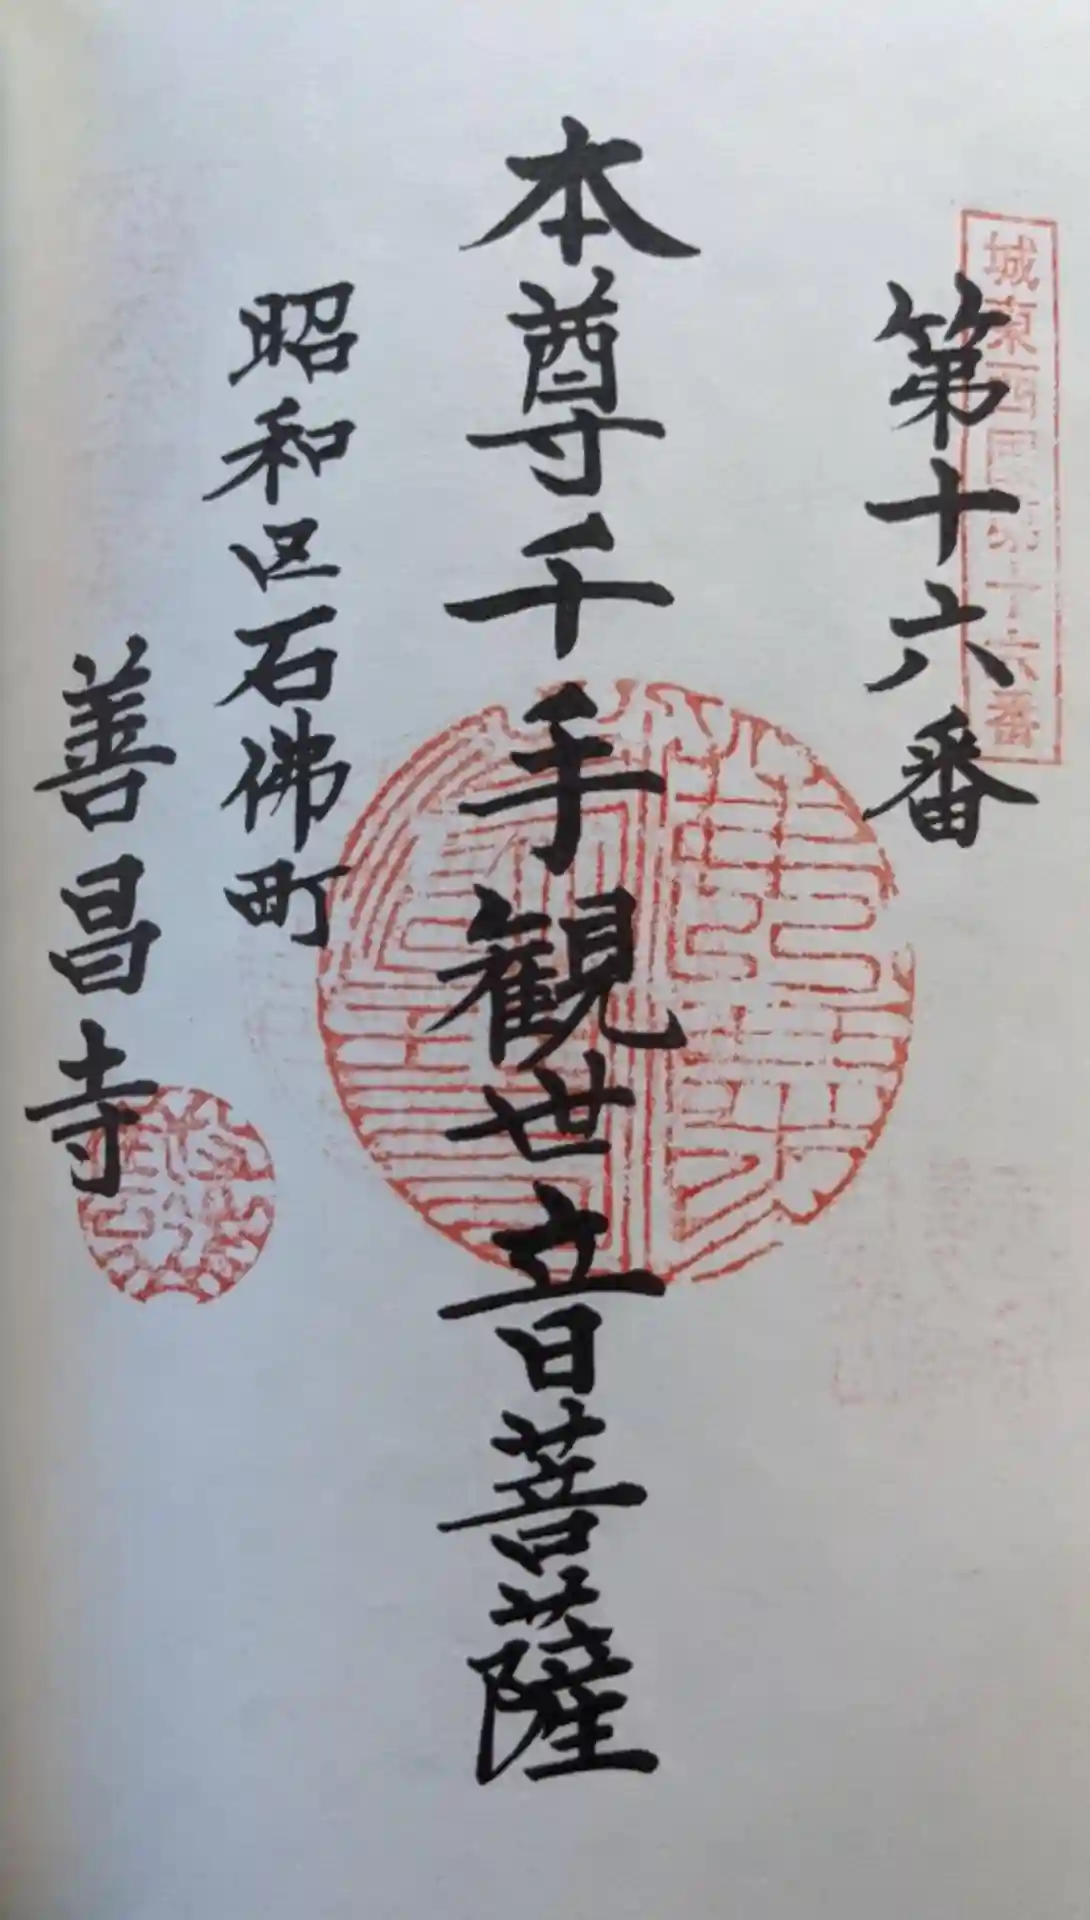 城東西國第十六番
第十六番
本尊千手観世音菩薩
昭和区石佛町
善昌寺